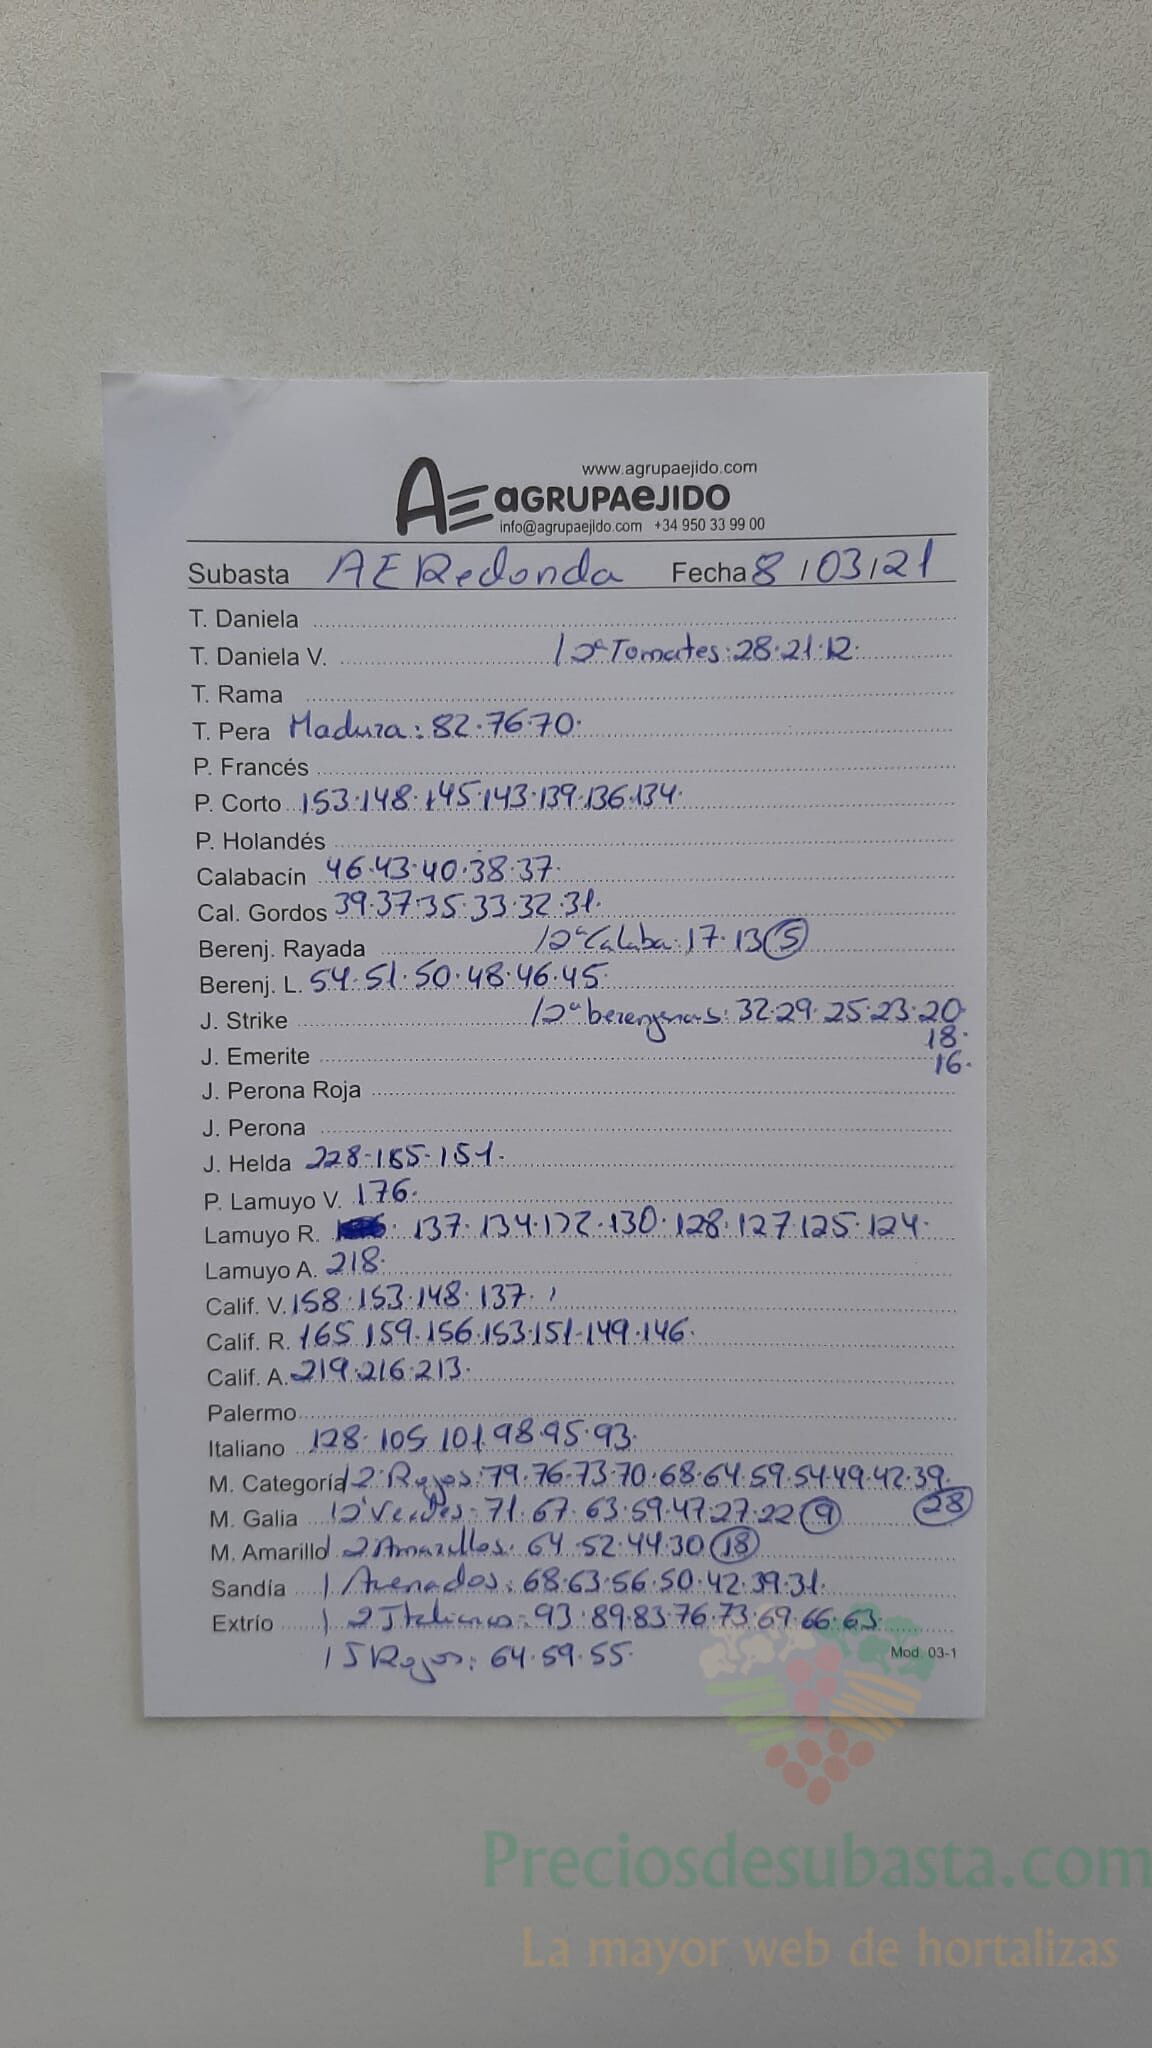 www.agrupaejido.com
AE aGRUPAeJIDO
info@agrupaejido.com +34 950 33 99 00
Subasta AE Redonda Fecha 8/03/21
T. Daniela
T. Daniela V. / 2ª Tomates: 28·21·12·
T. Rama
T. Pera Madura: 82·76·70·
P. Francés
P. Corto 153·148·145·143·139·136·134·
P. Holandés
Calabacín 46·43·40·38·37·
Cal. Gordos 39·37·35·33·32·31·
Berenj. Rayada / 2ª Calaba: 17·13 (5)
Berenj. L. 54·51·50·48·46·45·
J. Strike / 2ª berenjenas: 32·29·25·23·20·
18·
J. Emerite 16·
J. Perona Roja
J. Perona
J. Helda 228·185·151·
P. Lamuyo V. 176·
Lamuyo R. 137·134·132·130·128·127·125·124·
Lamuyo A. 218·
Calif. V. 158·153·148·137·
Calif. R. 165·159·156·153·151·149·146·
Calif. A. 219·216·213·
Palermo
Italiano 128·105·101·98·95·93·
M. Categoría / 2ª Rojos: 79·76·73·70·68·64·59·54·49·42·39·
M. Galia / 2ª Verdes: 71·67·63·59·47·27·22 (9) (28)
M. Amarillo / 2 Amarillos: 64·52·44·30 (18)
Sandía / Asenados: 68·63·56·50·42·39·31·
Extrío / 2 Italianos: 93·89·83·76·73·69·66·63·
/ 5 Rojos: 64·59·55·
Mod. 03-1
Preciosdesubasta.com
La mayor web de hortalizas